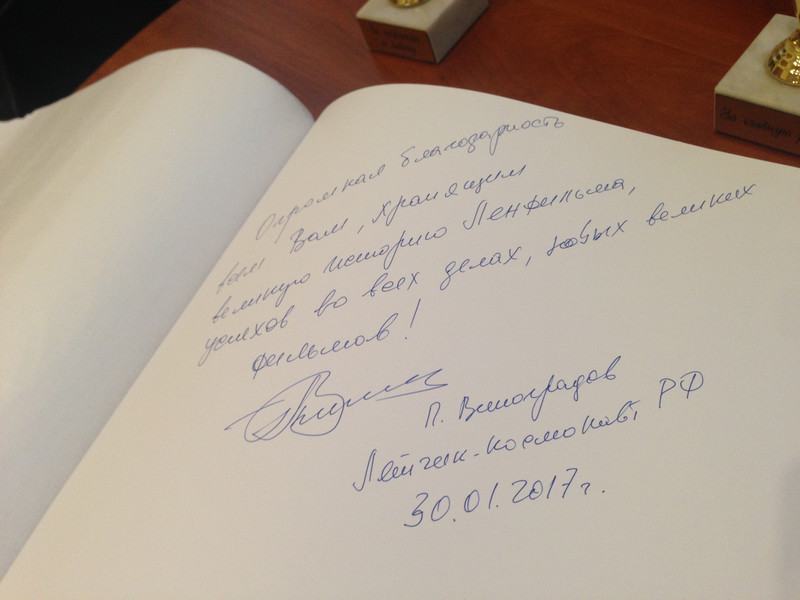 За
Огромная благодарность
всем Вам, хранящим
великую историю Ленфильма,
успехов во всех делах, новых великих
фильмов!
П. Виноградов
Лётчик-космонавт РФ
30.01.2017г.